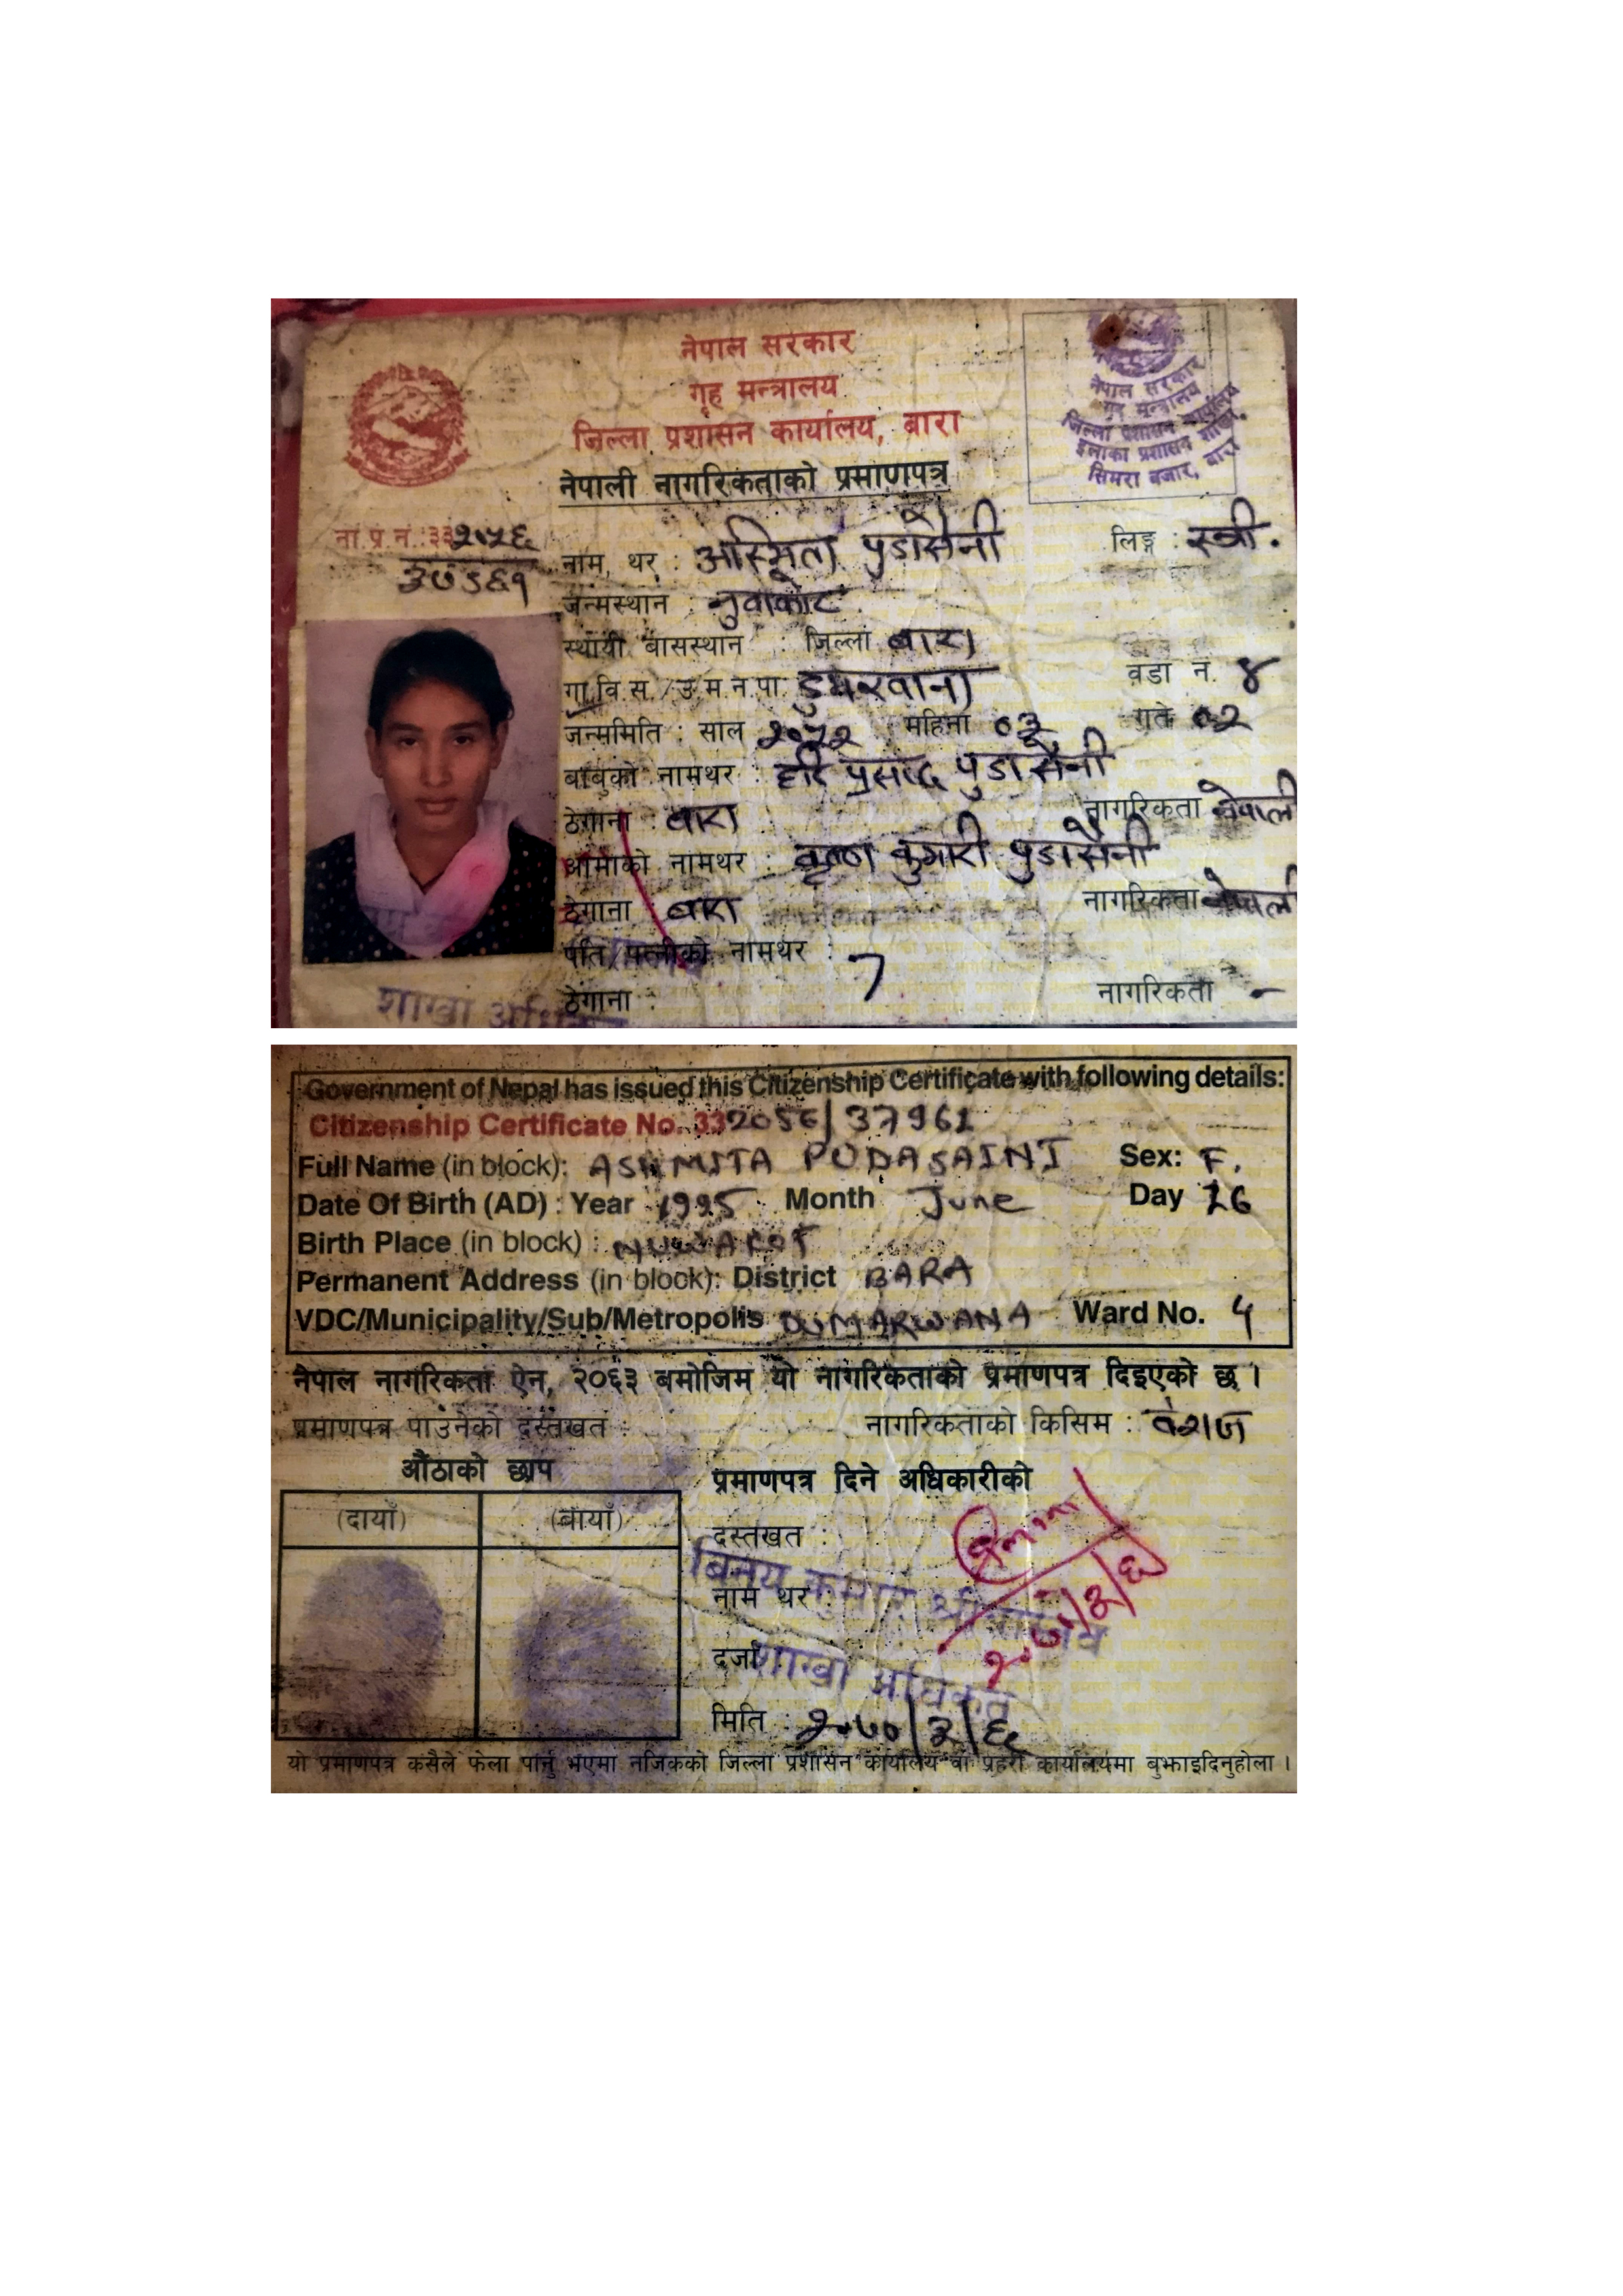 नेपाल सरकार
गृह मन्त्रालय
जिल्ला प्रशासन कार्यालय, बारा
नेपाली नागरिकताको प्रमाणपत्र
नेपाल सरकार
गृह मन्त्रालय
जिल्ला प्रशासन कार्यालय
इलाका प्रशासन शाखा
सिमरा बजार, बारा
ना.प्र.नं.:३३२०५६
३७९६१
नाम, थर : अस्मिता पुडासैनी लिङ्ग : स्त्री.
जन्मस्थान : नुवाकोट
स्थायी बासस्थान : जिल्ला बारा
गा.वि.स./उ.म.न.पा. डुमरवाना वडा नं. ४
जन्ममिति : साल २०५२ महिना ०३ गते ०२
बाबुको नामथर : हरि प्रसाद पुडासैनी
ठेगाना : बारा नागरिकता नेपाली
आमाको नामथर : कृष्ण कुमारी पुडासैनी
ठेगाना बारा नागरिकता नेपाली
पति/पत्नीको नामथर :
ठेगाना : नागरिकता -
शाखा अधिकृत
Government of Nepal has issued this Citizenship Certificate with following details:
Citizenship Certificate No. 332056/37961
Full Name (in block): ASHMITA PUDASAINI Sex: F.
Date Of Birth (AD) : Year 1995 Month June Day 16
Birth Place (in block) : NUWAKOT
Permanent Address (in block): District BARA
VDC/Municipality/Sub/Metropolis DUMARWANA Ward No. 4
नेपाल नागरिकता ऐन, २०६३ बमोजिम यो नागरिकताको प्रमाणपत्र दिइएको छ ।
प्रमाणपत्र पाउनेको दस्तखत : नागरिकताको किसिम : वंशज
औंठाको छाप
(दायाँ) (बायाँ)
प्रमाणपत्र दिने अधिकारीको
दस्तखत :
२०७०/३/६
नाम थर : बिनय कुमार श्रीवास्तव
दर्जा शाखा अधिकृत
मिति : २०७०/३/६
यो प्रमाणपत्र कसैले फेला पार्नु भएमा नजिकको जिल्ला प्रशासन कार्यालय वा प्रहरी कार्यालयमा बुझाइदिनुहोला ।